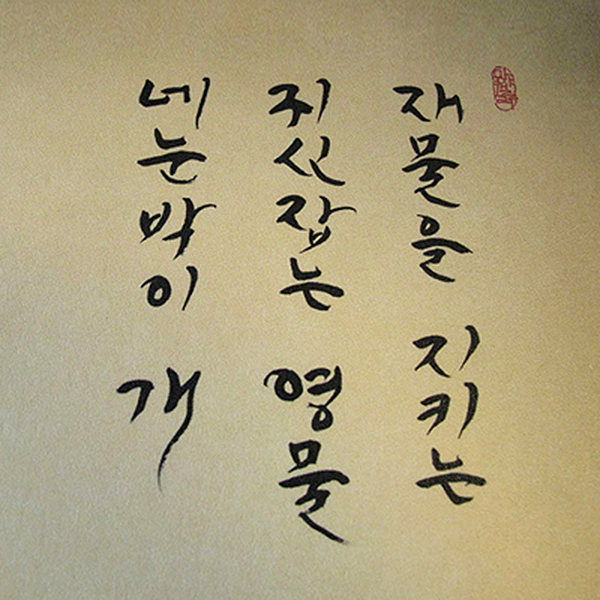 재물을 지키는
지신잡는 영물
네눈박이 개